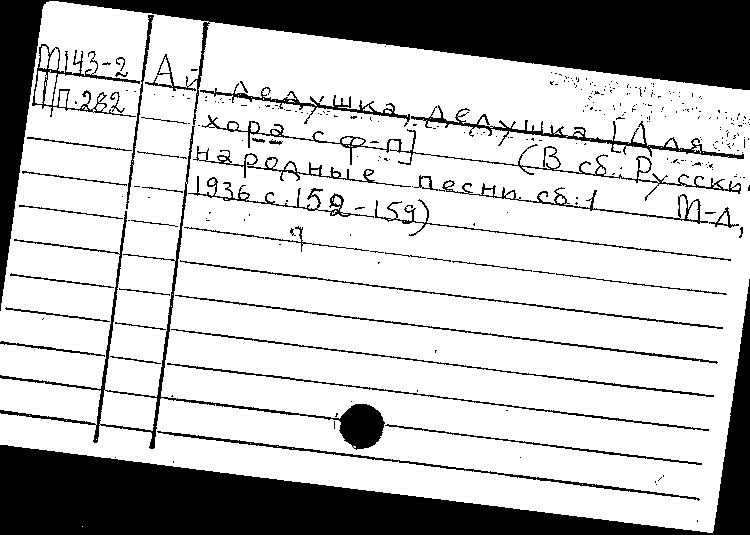 М143-2
П.282
Ай, дедушка, дедушка [Для
хора с ф-п] (В сб: Русски
народные песни. сб:1 М-Л,
1936 с.152-159)